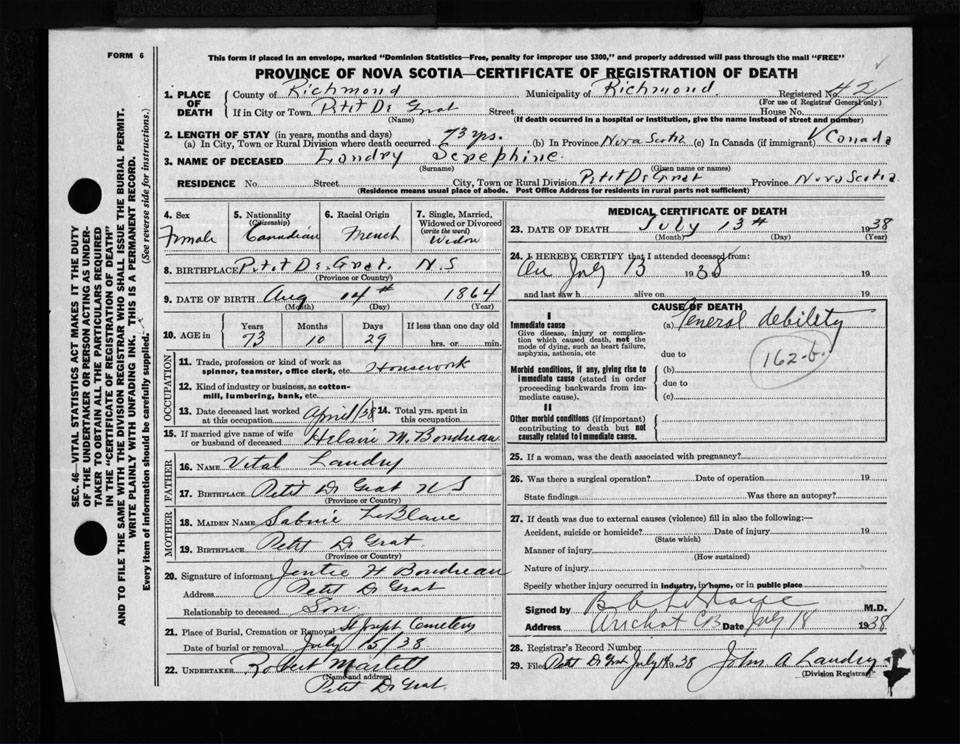 FORM 6
This form if placed in an envelope, marked "Dominion Statistics—Free, penalty for improper use $300," and properly addressed will pass through the mail "FREE"
PROVINCE OF NOVA SCOTIA—CERTIFICATE OF REGISTRATION OF DEATH
SEC. 46—VITAL STATISTICS ACT MAKES IT THE DUTY
OF THE UNDERTAKER OR PERSON ACTING AS UNDER-
TAKER TO OBTAIN ALL THE PARTICULARS REQUIRED
IN THE "CERTIFICATE OF REGISTRATION OF DEATH"
AND TO FILE THE SAME WITH THE DIVISION REGISTRAR WHO SHALL ISSUE THE BURIAL PERMIT.
WRITE PLAINLY WITH UNFADING INK. THIS IS A PERMANENT RECORD.
Every item of information should be carefully supplied. (See reverse side for instructions.)
1. PLACE OF DEATH County of Richmond Municipality of Richmond. Registered No. 42
(For use of Registrar General only)
If in City or Town Petit De Grat Street House No.
(Name) (If death occurred in a hospital or institution, give the name instead of street and number)
2. LENGTH OF STAY (in years, months and days)
(a) In City, Town or Rural Division where death occurred 73 yrs. (b) In Province Nova Scotia (c) In Canada (if immigrant) Canada
3. NAME OF DECEASED Landry Serephine
(Surname) (Given name or names)
RESIDENCE No. Street City, Town or Rural Division Petit De Grat Province Nova Scotia
(Residence means usual place of abode. Post Office Address for residents in rural parts not sufficient)
4. Sex
Female
5. Nationality
(Citizenship)
Canadian
6. Racial Origin
French
7. Single, Married, Widowed or Divorced
(write the word)
Widow
8. BIRTHPLACE Petit De Grat, N.S
(Province or Country)
9. DATE OF BIRTH Aug 14th 1864
(Month) (Day) (Year)
10. AGE in Years Months Days If less than one day old
73 10 29 hrs. or min.
OCCUPATION
11. Trade, profession or kind of work as
spinner, teamster, office clerk, etc. Housework
12. Kind of industry or business, as cotton-
mill, lumbering, bank, etc.
13. Date deceased last worked at this occupation April/38 14. Total yrs. spent in this occupation
15. If married give name of wife or husband of deceased Helaire M. Boudreau
FATHER
16. NAME Vital Landry
17. BIRTHPLACE Petit D Grat N S
(Province or Country)
MOTHER
18. MAIDEN NAME Sabnie LeBlanc
19. BIRTHPLACE Petit D Grat.
(Province or Country)
20. Signature of informant H Boudreau
Address Petit D Grat
Relationship to deceased Son
21. Place of Burial, Cremation or Removal St Joseph Cemetery
Date of burial or removal July 15/38
22. UNDERTAKER Robert
(Name and address)
Petit D Grat.
MEDICAL CERTIFICATE OF DEATH
23. DATE OF DEATH July 13th 1938
(Month) (Day) (Year)
24. I HEREBY CERTIFY that I attended deceased from:
On July 13 1938 19
and last saw h alive on 19
CAUSE OF DEATH
I
Immediate cause
Give disease, injury or complica-
tion which caused death, not the
mode of dying, such as heart failure,
asphyxia, asthenia, etc
(a) General debility
due to
162.b.
Morbid conditions, if any, giving rise to
immediate cause (stated in order
proceeding backwards from im-
mediate cause).
(b)
due to
(c)
II
Other morbid conditions (if important)
contributing to death but not
causally related to immediate cause.
25. If a woman, was the death associated with pregnancy?
26. Was there a surgical operation? Date of operation 19
State findings Was there an autopsy?
27. If death was due to external causes (violence) fill in also the following:—
Accident, suicide or homicide? Date of injury 19
(State which)
Manner of injury
(How sustained)
Nature of injury
Specify whether injury occurred in industry, in home, or in public place
Signed by B. C. LeBlanc M.D.
Address Arichat CB Date July 18 1938
28. Registrar's Record Number
29. Filed Petit D Grat July 1938 John A Landry
(Division Registrar)